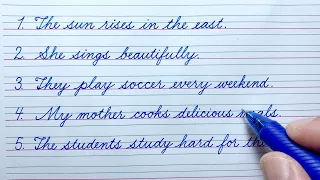 1. The sun rises in the east.
2. She sings beautifully.
3. They play soccer every weekend.
4. My mother cooks delicious meals.
5. The students study hard for the